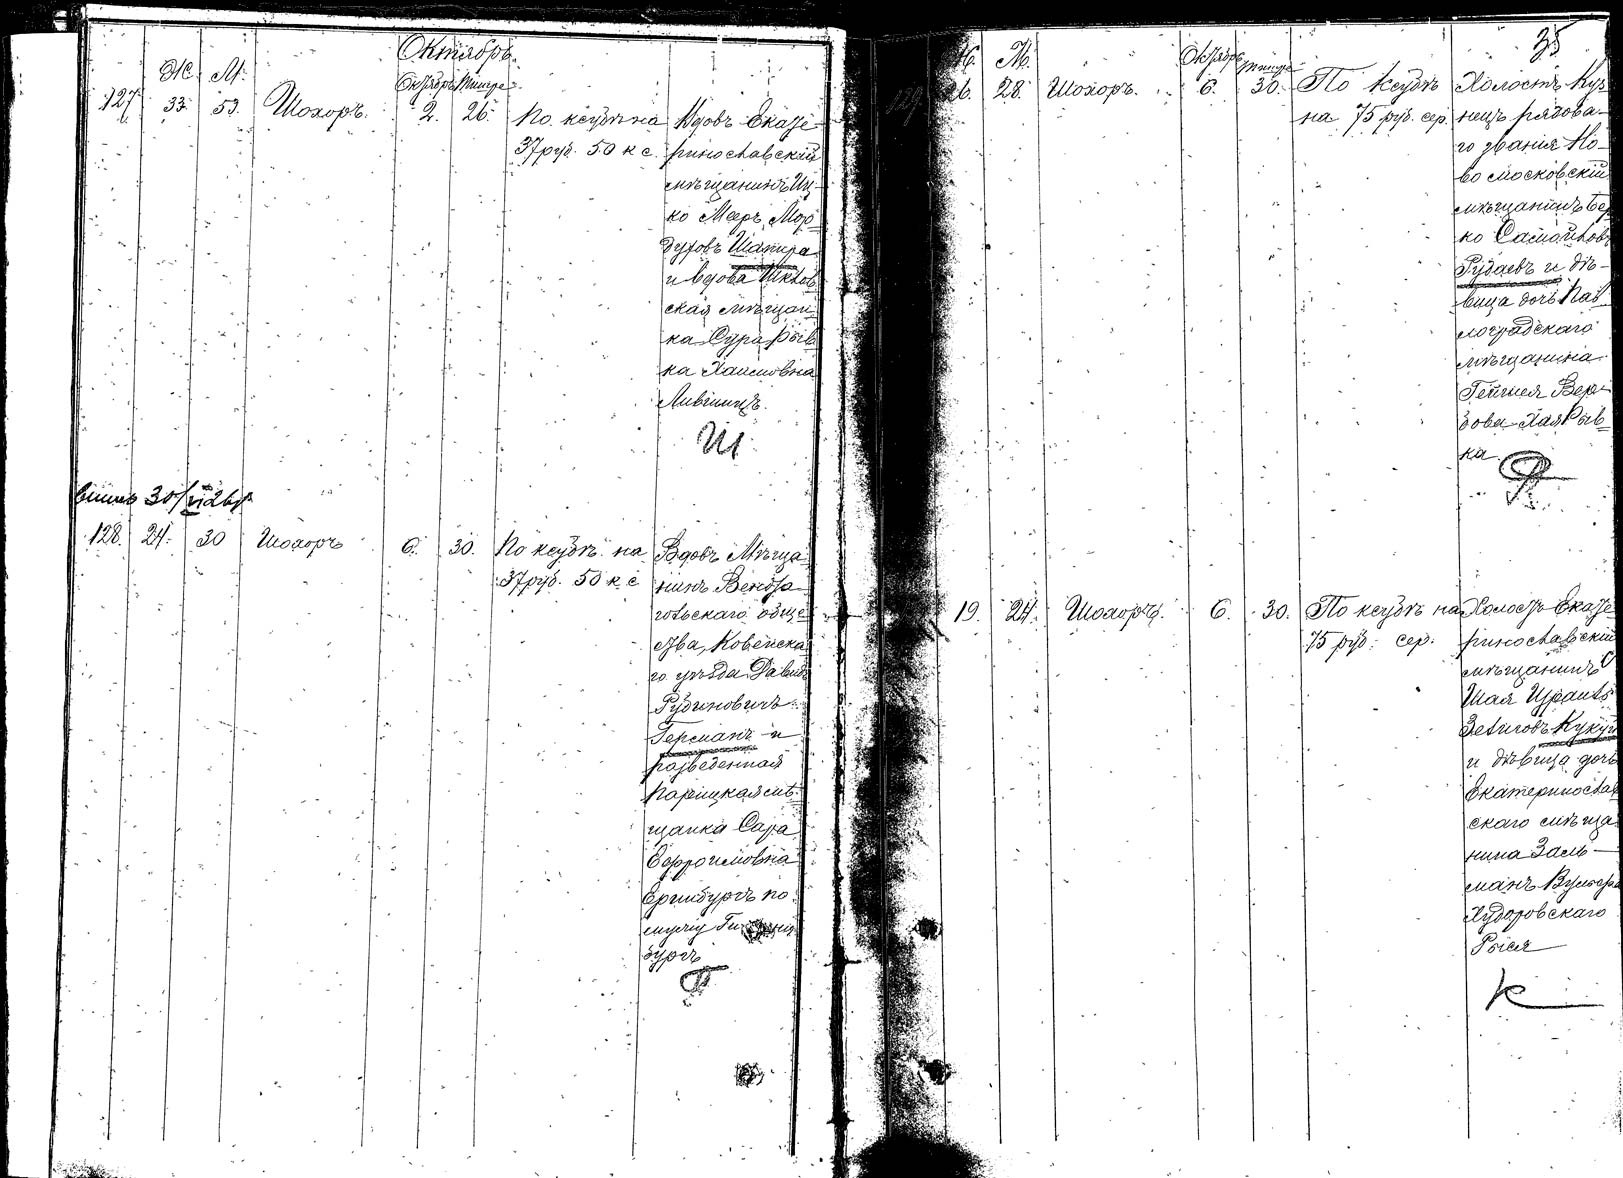 Октябрь.
Ж. М.
Октябрь Тишре
127 33 53. Шохоръ. 2. 26. По ксубѣ на
37 руб. 50 к с.
Вдовъ Екате-
ринославскій
мѣщанинъ Иц-
ко Мееръ Мор-
духовъ Шапира
и вдова Шклов-
ская мѣщан-
ка Сура Рыв-
ка Хаимовна
Лившицъ.
Ш
30/VI
128. 24. 30 Шохоръ 6. 30. По ксубѣ на
37 руб. 50 к с
Вдовъ Мѣща-
нинъ Вендзя-
гольскаго обще-
ства, Ковенска-
го уѣзда Давидъ
Рубиновичъ
Германъ и
разведенная
мѣ-
щанка Сара
Ефроимовна
по
мужу
бургъ
Г
35
Ж. М.
Октябрь Тишре
129. 26. 28. Шохоръ. 6. 30. По ксубѣ
на 75 руб. сер.
Холостъ Куз-
нецъ рядова-
го званія Но-
во московскій
мѣщанинъ Бер-
ко Самойловъ
Рудаевъ и дѣ-
вица дочь Пав-
лоградскаго
мѣщанина
Хая Рыв-
ка.
Р
19. 24. Шохоръ. 6. 30. По ксубѣ на
75 руб. сер.
Холостъ Екате-
ринославскій
мѣщанинъ
Шая Израиль
Зелиговъ Кукуй
и дѣвица дочь
Екатеринослав-
скаго мѣща-
нина Заль-
манъ Вульфа
Худоровскаго
Рыся
К